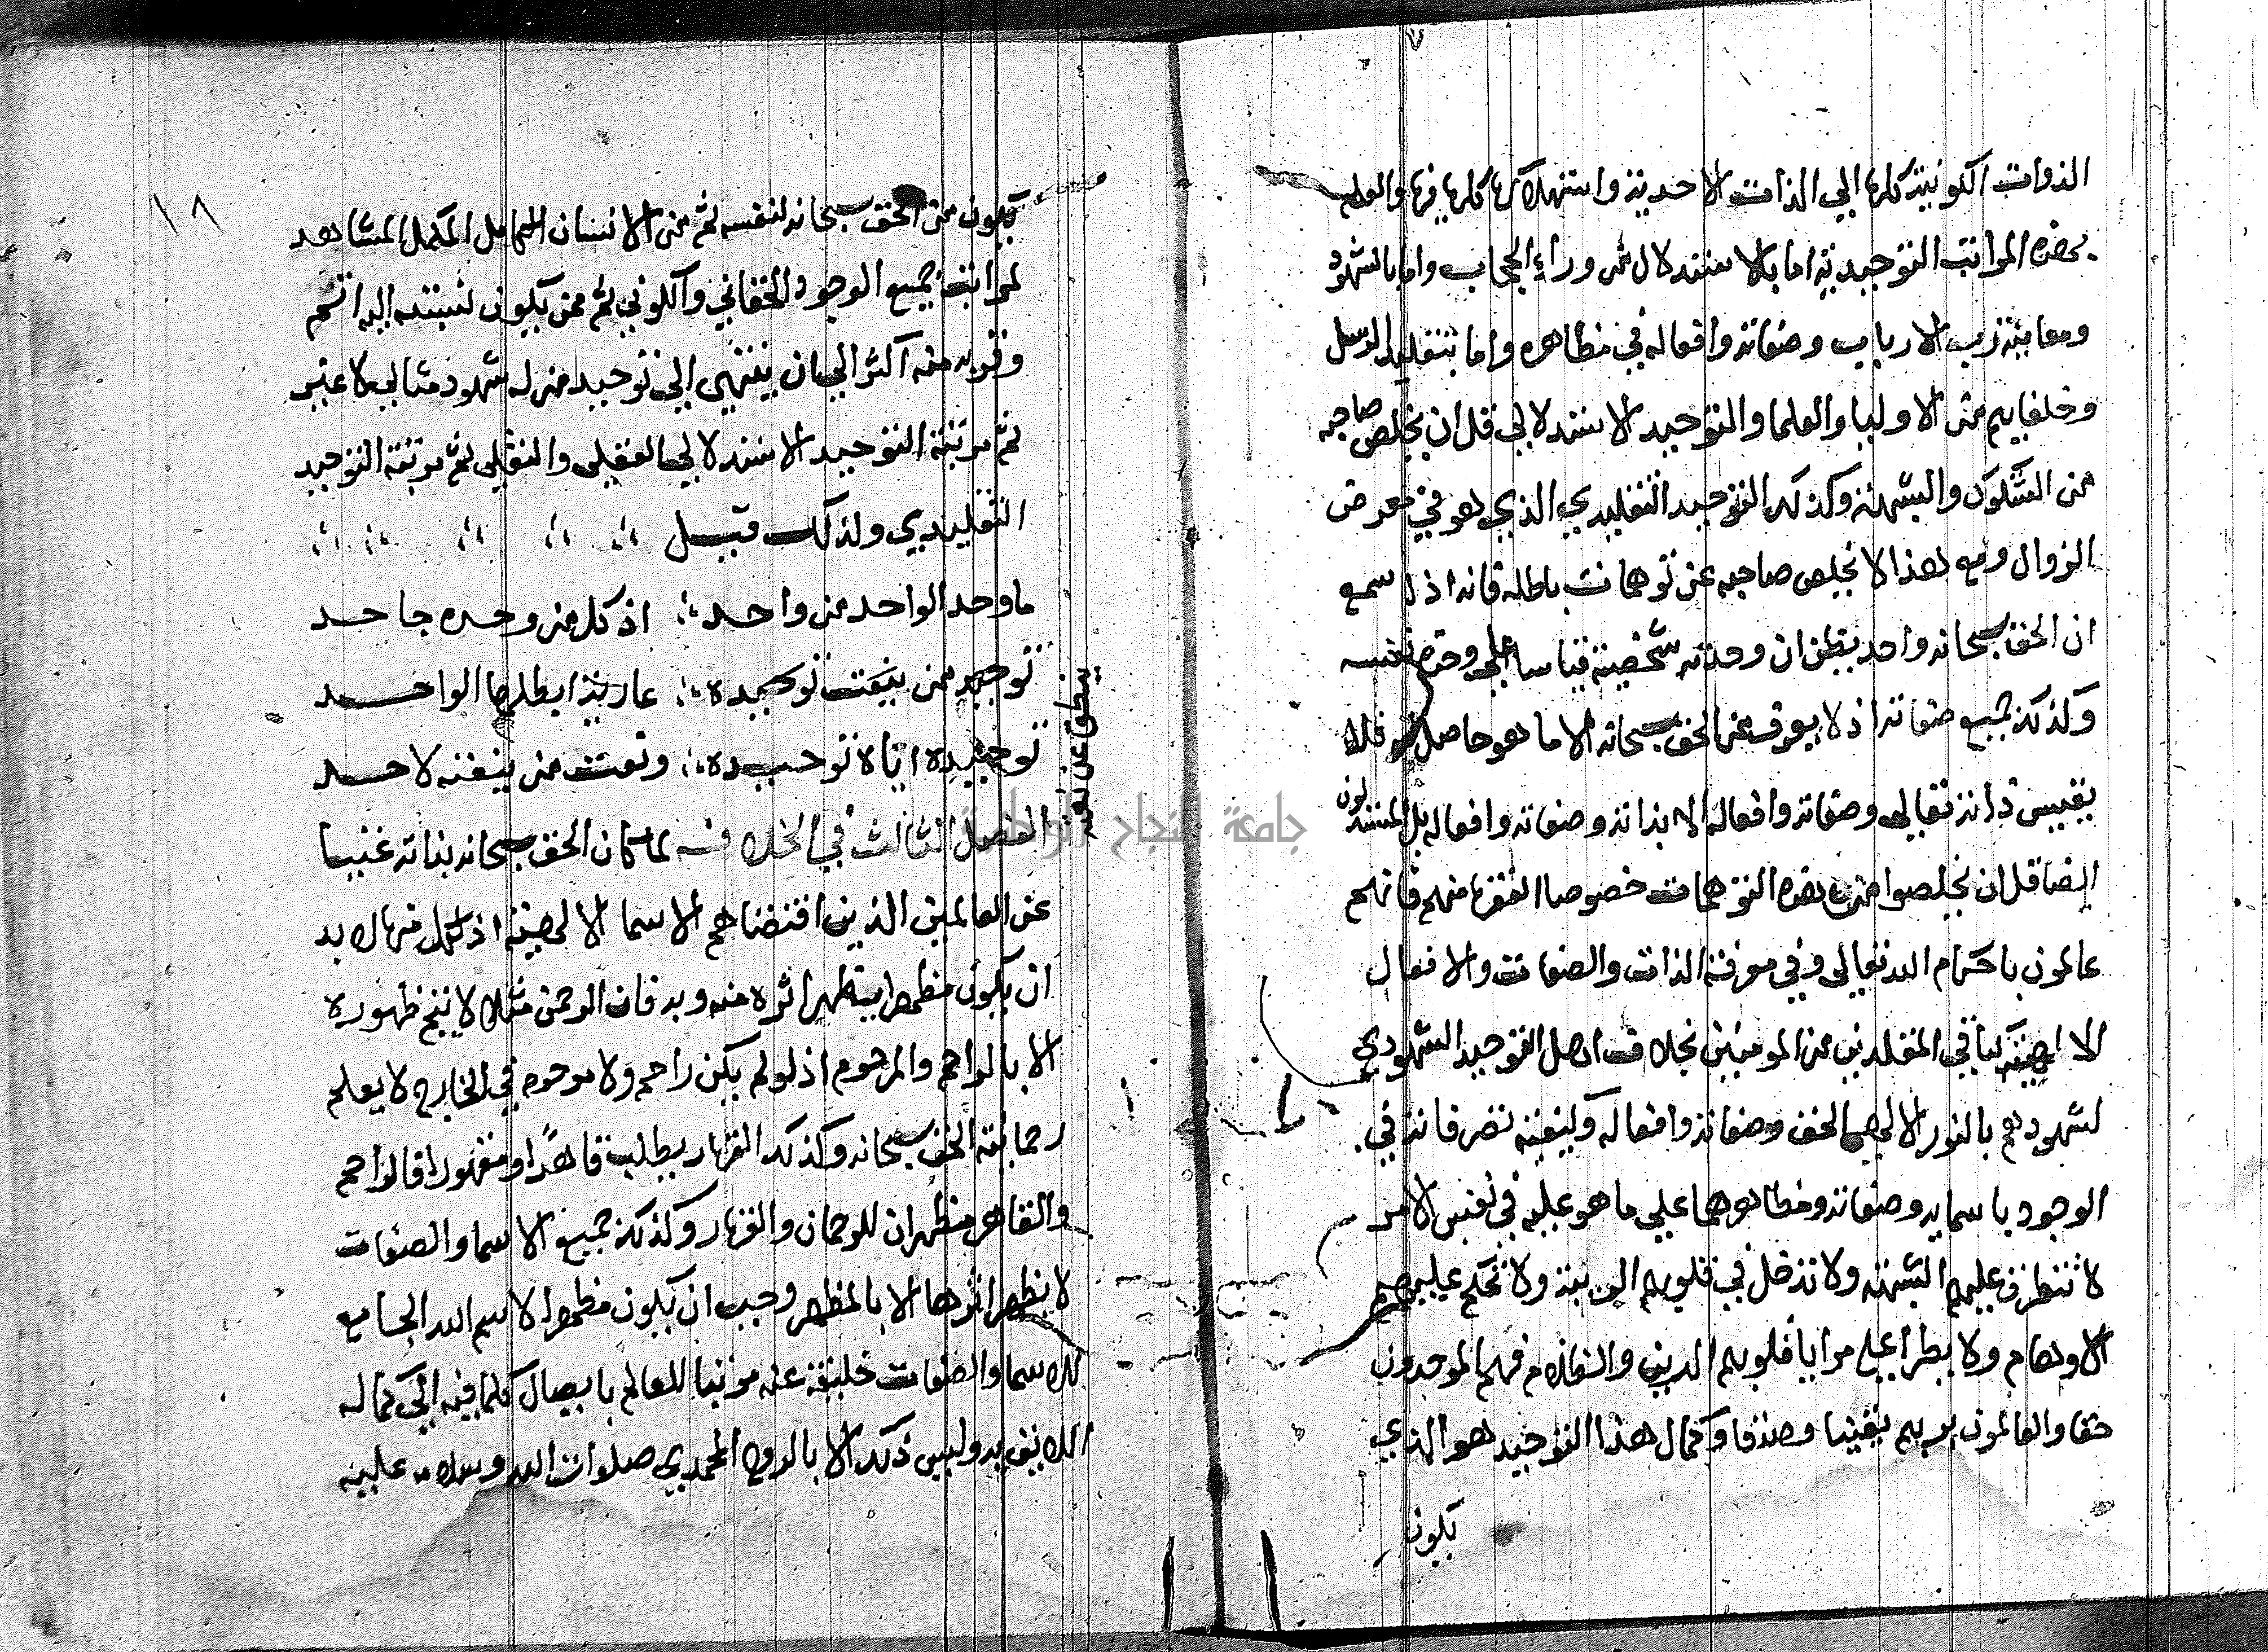 الذوات الكونية كلها الي الذات الاحدية واستهلاكها كلها فيها والعلم
بهذه المراتب التوحيدية اما بالاستدلال من وراء الحجاب واما بالشهود
ومعاينة رب الارباب وصفاته وافعاله في مظاهره واما بتقليد الرسل
وخلفايهم من الاوليا والعلما والتوحيد الاستدلالي قل ان يخلص صاحبه
من الشكوك والشبهة وكذلك التوحيد التقليدي الذي هو في معرض
الزوال ومع هذا لا يخلص صاحبه عن توهمات باطلة فانه اذا سمع
ان الحق سبحانه واحد يظن ان وحدته شخصية قياسا علي وحدة نفسه
وكذلك جميع صفاته اذ لا يعرف من الحق سبحانه الا ما هو حاصل له فلا
يقيس ذاته تعالى وصفاته وافعاله الا بذاته وصفاته وافعاله بل المستدلون
ايضا قل ان يخلصوا من هذه التوهمات خصوصا الفقها منهم فانهم
عالمون باحكام الله تعالى وفي معرفة الذات والصفات والافعال
الالهية كباقي المقلدين من المومنين بخلاف اهل التوحيد الشهودي
لشهودهم بالنور الالهي الحق وصفاته وافعاله وكيفية تصرفاته في
الوجود باسمايه وصفاته ومظاهرهما علي ما هو عليه في نفس الامر
لا تتطرق عليهم الشبهة ولا تدخل في قلوبهم الريبة ولا تحكم عليهم
الاوهام ولا يطرا علي مرايا قلوبهم الرين والظلام فهم الموحدون
حقا والعالمون بربهم يقينا وصدقا وكمال هذا التوحيد هو الذي
يكون
١٨
يكون من الحق سبحانه لنفسه ثم من الانسان الكامل المكمل المشاهد
لمراتب جميع الوجود الحقاني والكوني ثم ممن يكون نسبته اليه اتم
وقربه منه اكثر الي ان ينتهي الي توحيد من له شهود مثالي لا غير
ثم مرتبة التوحيد الاستدلالي العقلي والنقلي ثم مرتبة التوحيد
التقليدي ولذلك قيل
ما وحد الواحد من واحد اذ كل من وحده جاحد
توحيد من ينعت توحيده عارية ابطلها الواحد
توحيده اياه توحيده ونعت من ينعته لاحد
ينطق عن نعته
الفصل الثالث في الخلافة لما كان الحق سبحانه بذاته غنيا
عن العالمين الذين اقتضاهم الاسما الالهية اذ لكل منها لا بد
ان يكون مظهرا يظهر اثره منه وبه فان الرحمن مثلا لا يتم ظهوره
الا بالراحم والمرحوم اذ لو لم يكن راحم ولا مرحوم في الخارج لا يعلم
رحمانية الحق سبحانه وكذلك القهار يطلب قاهرا ومقهورا فالراحم
والقاهر مظهران للرحمان والقهار وكذلك جميع الاسما والصفات
لا يظهر اثرها الا بالمظهر وجب ان يكون مظهرا لاسم الله الجامع
للاسما والصفات خليفة عنه مربيا للعالم بايصال كلما فيه الي كماله
اللايق به وليس ذلك الا بالروح المحمدي صلوات الله وسلامه عليه
جامعة النجاح الوطنية